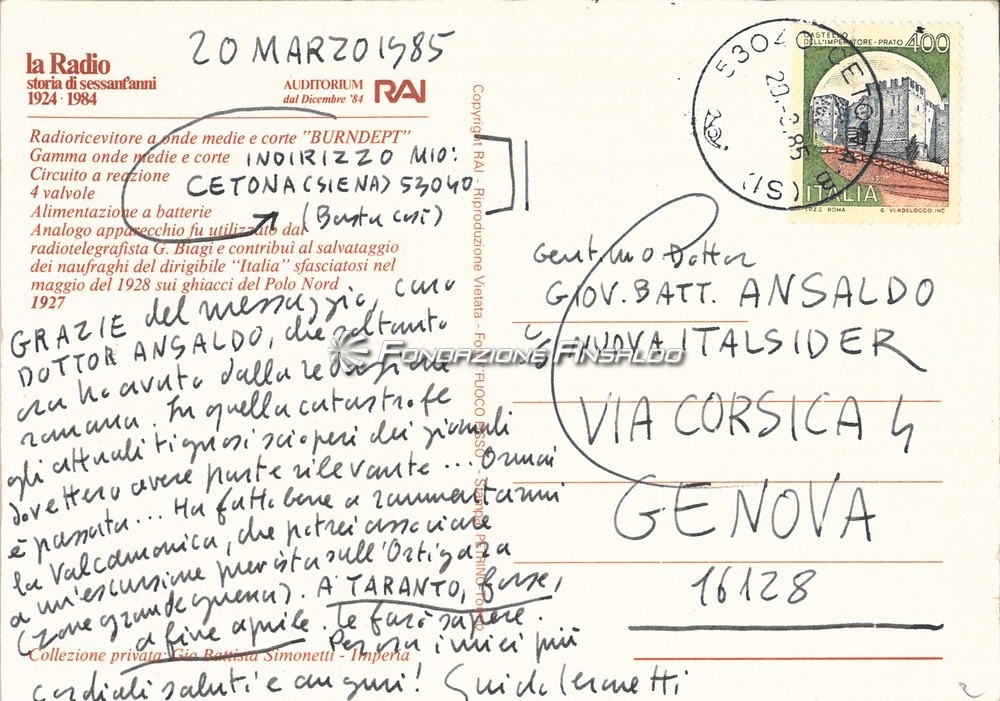 20 MARZO 1985
la Radio
storia di sessant'anni
1924·1984
AUDITORIUM
dal Dicembre '84
RAI
Radioricevitore a onde medie e corte "BURNDEPT"
Gamma onde medie e corte
Circuito a reazione
4 valvole
Alimentazione a batterie
Analogo apparecchio fu utilizzato dal
radiotelegrafista G. Biagi e contribuì al salvataggio
dei naufraghi del dirigibile "Italia" sfasciatosi nel
maggio del 1928 sui ghiacci del Polo Nord
1927
INDIRIZZO MIO:
CETONA (SIENA) 53040
(Basta così)
GRAZIE del messaggio, caro
DOTTOR ANSALDO, che soltanto
ora ho avuto dalla redazione
romana. In quella catastrofe
gli attuali tignosi scioperi dei giornali
dovettero avere parte rilevante... Ormai
è passata... Ha fatto bene a rammentarmi
la Valcamonica, che potrei associare
a un'escursione prevista sull'Ortigara
(zone grande guerra). A TARANTO, forse,
a fine aprile. Le farò sapere.
Per ora i miei più
cordiali saluti e auguri! Guido Ceronetti
Collezione privata: Gio Battista Simonetti - Imperia
Copyright RAI - Riproduzione Vietata - Fo "FUOCO FISSO" - Stampa: PETRINO Torino
FONDAZIONE ANSALDO
53040 CETONA B (SI)
20.3.85
CASTELLO
DELL'IMPERATORE-PRATO
400
ITALIA
I.P.Z.S. ROMA
G. VERDELOCCO INC.
Gent.mo Dottor
GIOV. BATT. ANSALDO
c/ NUOVA ITALSIDER
VIA CORSICA 4
GENOVA
16128
2